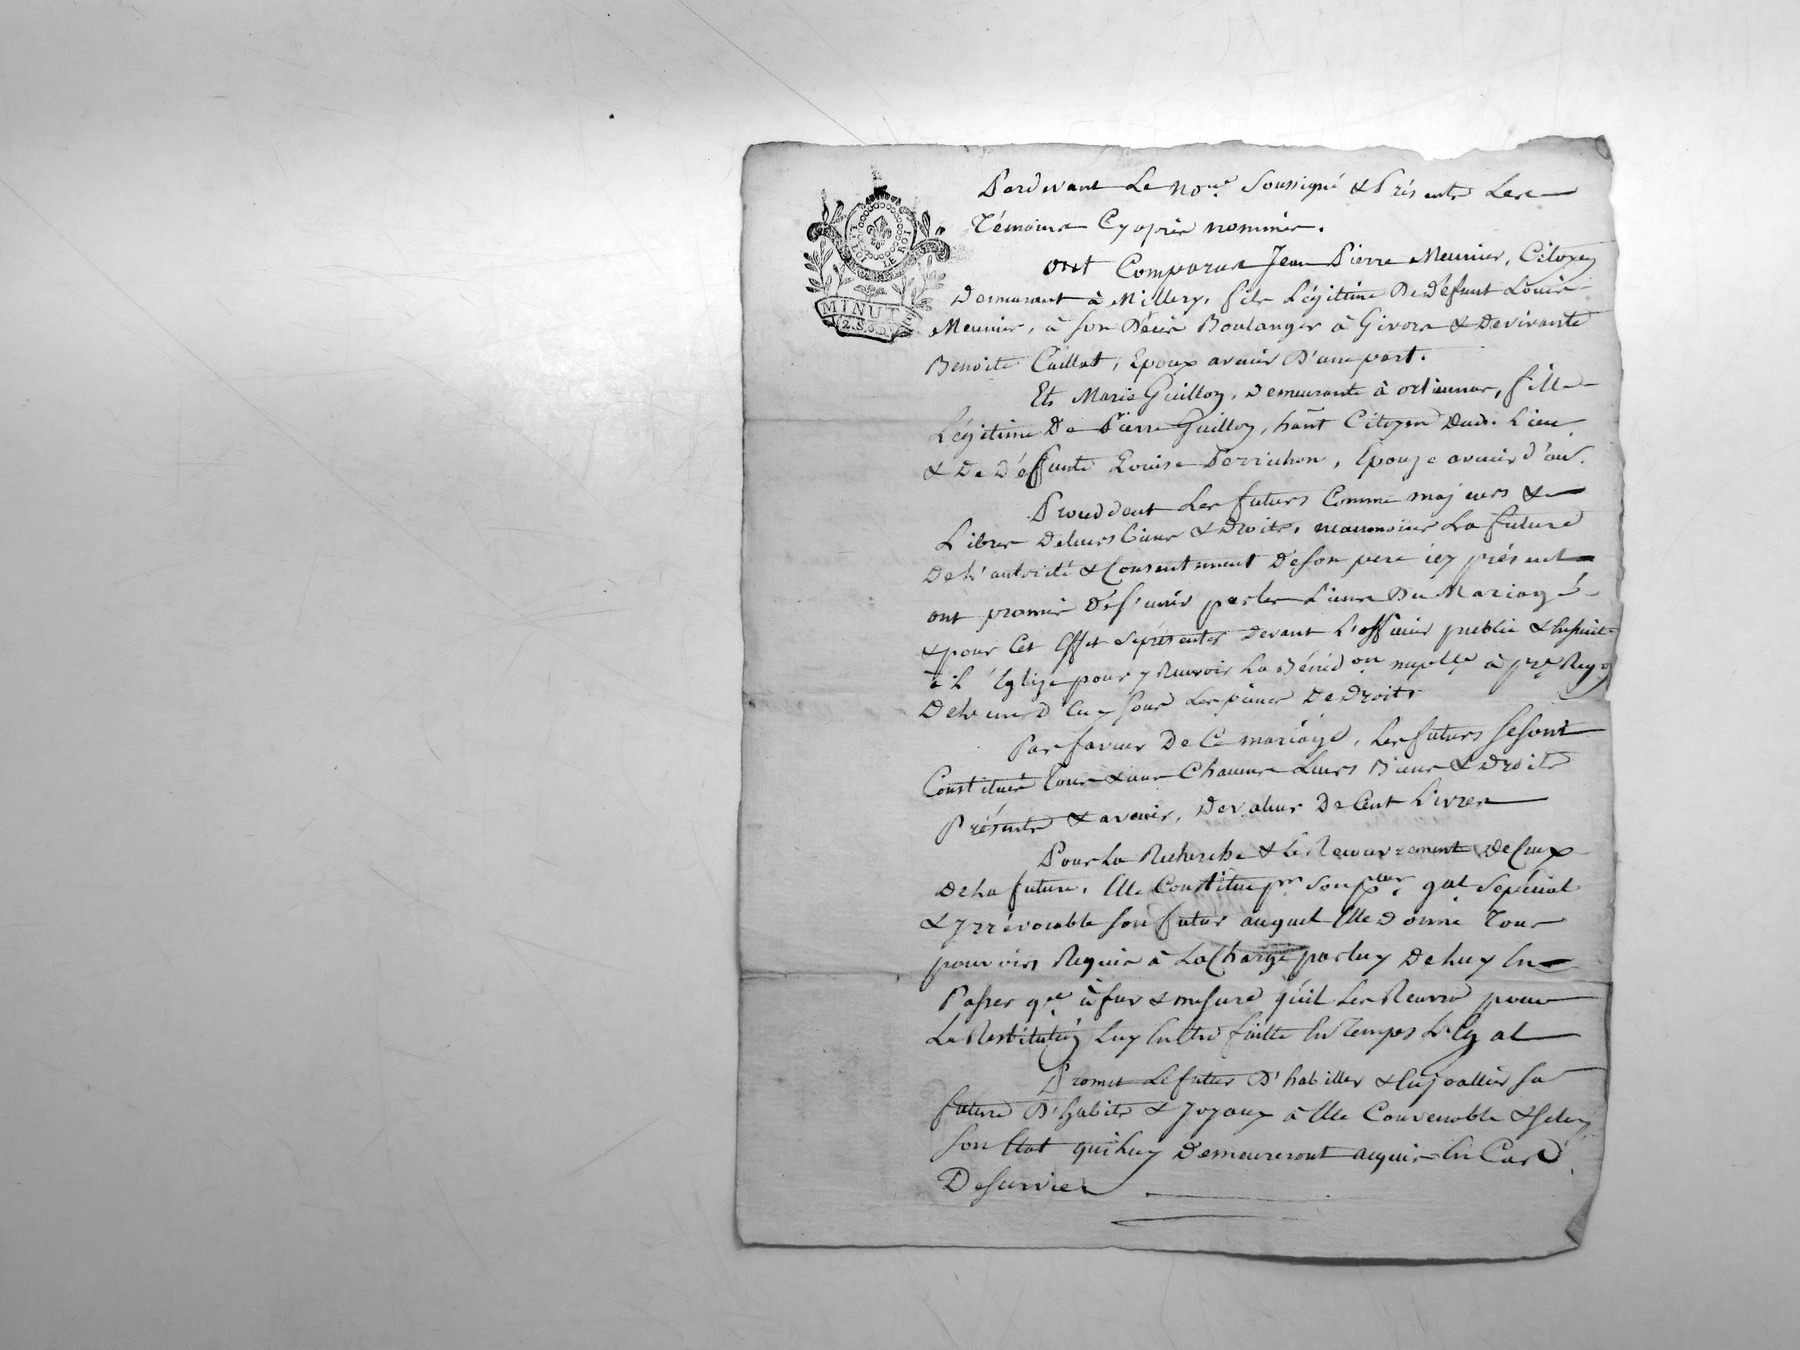 LA LOI ET LE ROI
MINUT
2.S.6.D.
Pardevant Le no.re Soussigné & Présents Les
Témoins Cy après nommés.
ont Comparus Jean Pierre Meunier, Citoyen
Demeurant à Millery, fils Légitime De Défunt Louis
Meunier, à son Décès Boulanger à Givors & De vivante
Benoite Caillat, Epoux avenir D'une part.
Et Marie Guillon, Demeurante à orliennas, fille
Légitime De Pierre Guillon, hant Citoyen Dud. Lieu
& De Déffunte Louise Derrichon, Epouze avenir d'au.
Procedent Les futurs Comme majeurs &
Libres De leurs biens & Droits, neanmoins La future
De L'autorité & Consentement De son pere icy présent
ont promis De s'unir par les Liens Du Mariage
& pour Cet Effet Se présenter Devant L'officier public & Ensuite
à L'Eglize pour y Recevoir La Bénéd.on nuptlle à p.re Reqon
De L'un D'Eux sous Les peines De Droits
Par faveur De Ce mariage, Les futurs se sont
Constitués Tous & uns Chacuns Leurs Biens & Droits
Présents & avenir, De valeur De Cent Livres
Pour La Recherche & le Recouvrement De Ceux
De La future, Elle Constitue pr. son pr.eur gal Spécial
& Irrévocable son futur auquel Elle Donne Tous
pouvoirs Requis à La Charge par luy De luy En
Passer q.ce à fur & mesure qu'il Les Recevra pour
La Restitution Luy En Etre faitte En Temps L'Egal
Promet Le futur D'habiller & Enjoallier sa
future D'habits & Joyaux à Elle Convenable & selon
son Etat qui Luy Demeureront acquis En Cas
De survie